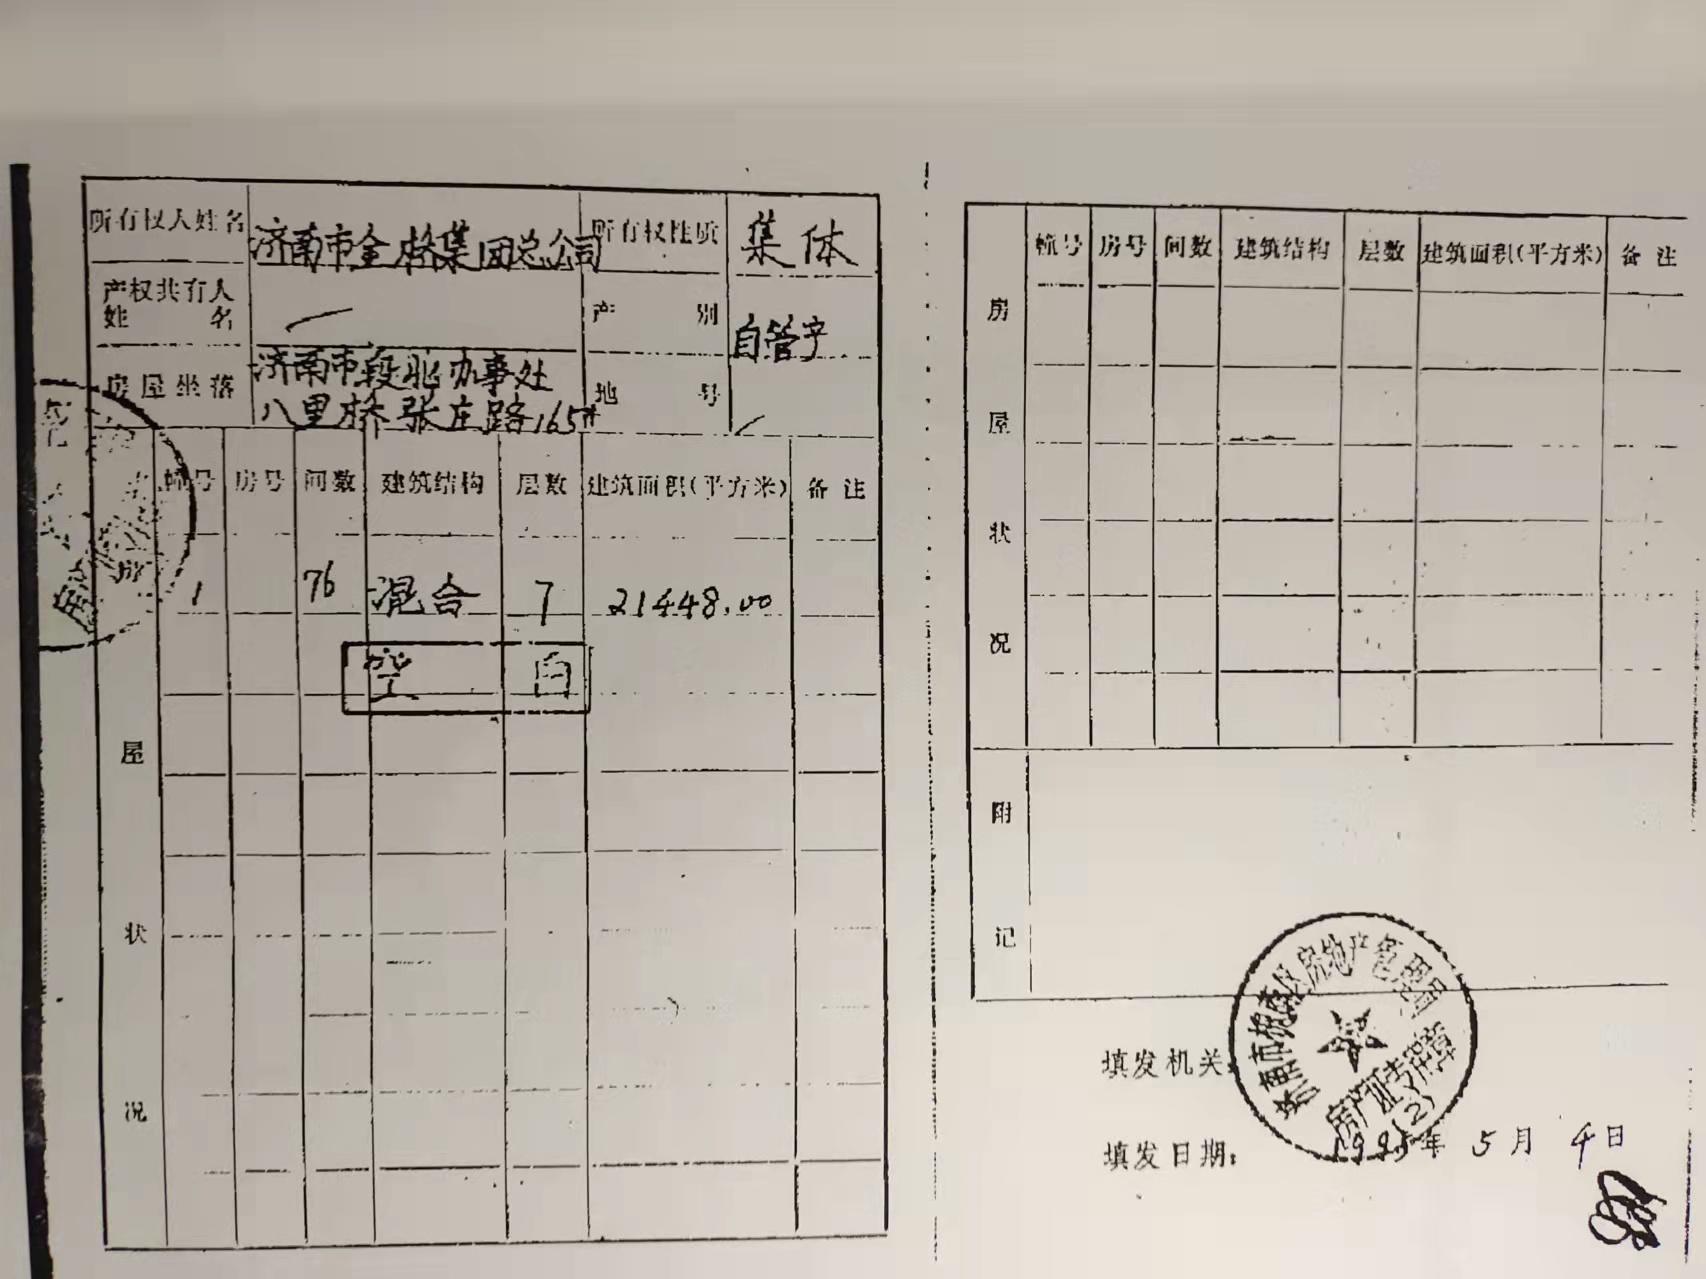 所有权人姓名 济南市金格集团总公司 所有权性质 集体
产权共有人
姓名 产别 自管产
房屋坐落 济南市段北办事处 地号
八里桥张庄路165#
幢号 房号 间数 建筑结构 层数 建筑面积(平方米) 备注
1 76 混合 7 21448.00
空白
房屋状况
幢号 房号 间数 建筑结构 层数 建筑面积(平方米) 备注
房屋状况
附记
济南市槐荫区房地产管理局
房产证专用章
(2)
填发机关:
填发日期: 1995年5月4日